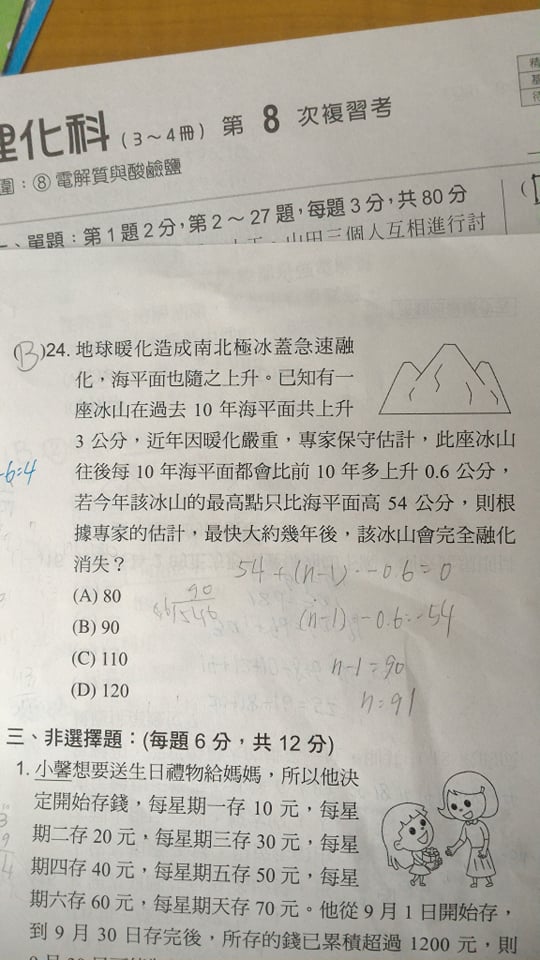 理化科(3～4冊) 第 8 次複習考
圍：⑧ 電解質與酸鹼鹽
一、單題：第1題2分，第2～27題，每題3分，共80分
山田三個人互相進行討
(B)24. 地球暖化造成南北極冰蓋急速融
化，海平面也隨之上升。已知有一
座冰山在過去 10 年海平面共上升
3 公分，近年因暖化嚴重，專家保守估計，此座冰山
-6=4
往後每 10 年海平面都會比前 10 年多上升 0.6 公分，
若今年該冰山的最高點只比海平面高 54 公分，則根
據專家的估計，最快大約幾年後，該冰山會完全融化
消失？
54+(n-1)·-0.6=0
(A) 80
90
(n-1)·-0.6=-54
(B) 90
(C) 110
n-1=90
(D) 120
n=91
三、非選擇題：(每題 6 分，共 12 分)
1. 小馨想要送生日禮物給媽媽，所以他決
定開始存錢，每星期一存 10 元，每星
期二存 20 元，每星期三存 30 元，每星
期四存 40 元，每星期五存 50 元，每星
期六存 60 元，每星期天存 70 元。他從 9 月 1 日開始存，
到 9 月 30 日存完後，所存的錢已累積超過 1200 元，則